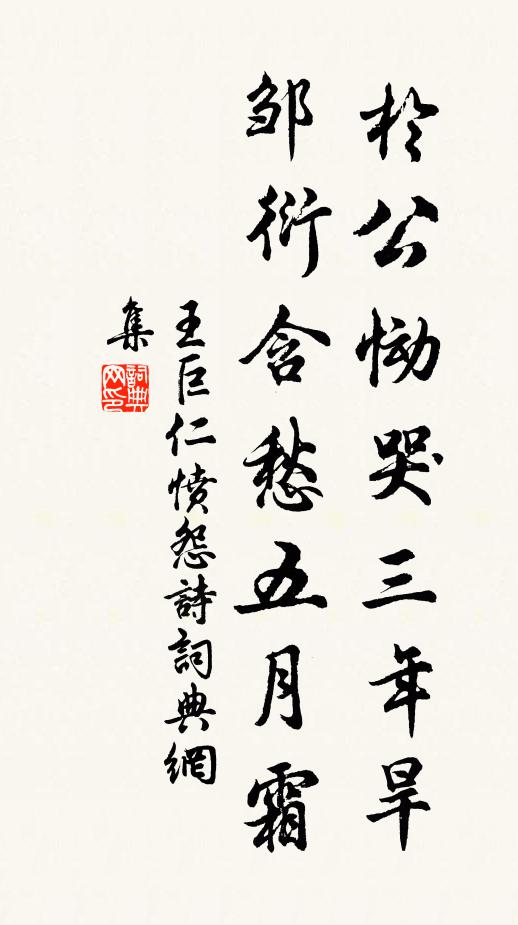 於公慟哭三年旱
邹衍含愁五月霜
王巨仁憤怨詩詞典網
集
詞典
网印